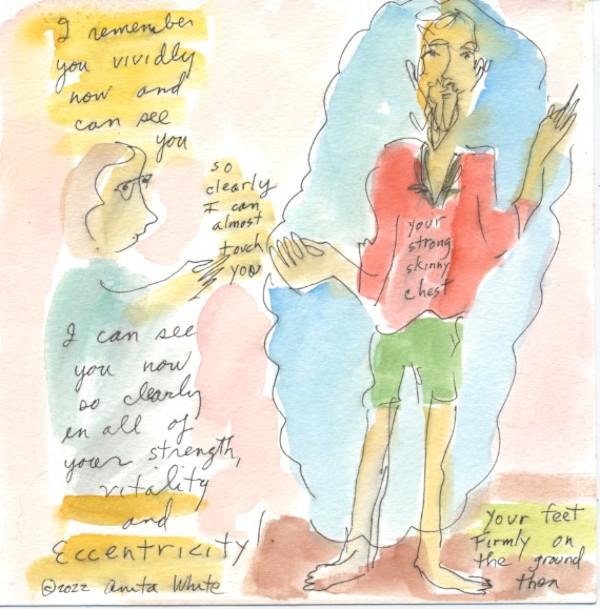 I remember
you vividly
now and
can see
you
so
clearly
I can
almost
touch
you
your
strong
skinny
chest
I can see
you now
so clearly
in all of
your strength,
vitality
and
Eccentricity!
©2022 Anita White
your feet
Firmly on
the ground
then